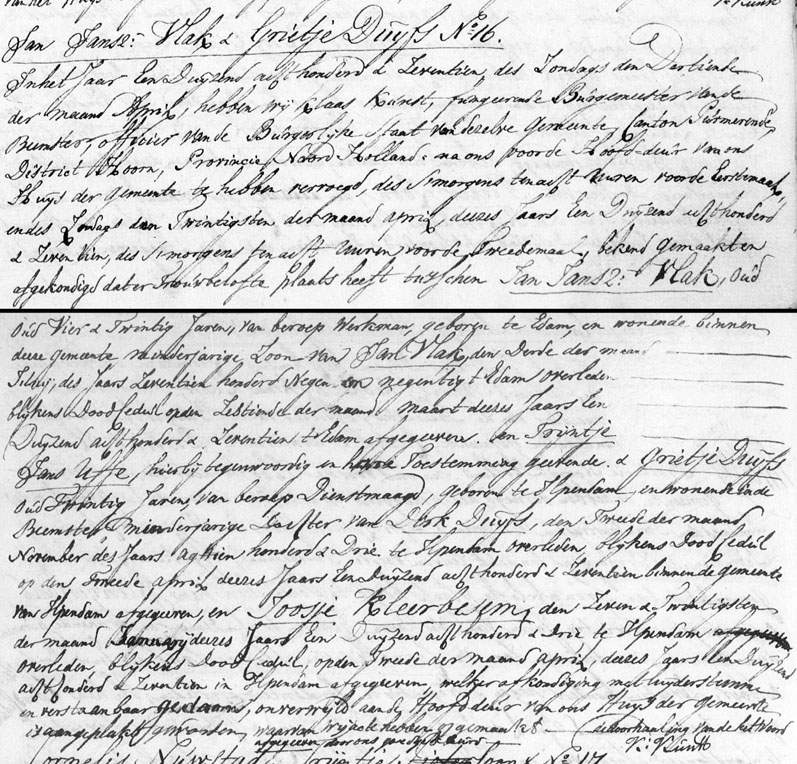 Jan Jansz: Vlak & Grietje Duijfs No. 16.
In het Jaar Een Duyzend acht honderd & Zeventien, des Zondags den Dertiende
der maand April, hebben wij Klaas Kunst, fungeerende Burgemeester van de
Beemster, officier van de Burgerlyke Staat van dezelve Gemeente, Canton Purmerende,
District Hoorn, Provincie Noord Holland: na ons voor de Hoofd-deur van ons
Huys der Gemeente te hebben vervoegd, des s'morgens ten acht Uuren voor de Eerstemaal,
en des Zondags den Twintigsten der maand april, deezes Jaars Een Duyzend acht honderd
& Zeventien, des s'morgens ten acht Uuren, voor de Tweedemaal, bekend gemaakt en
afgekondigd dat er Trouwbelofte plaats heeft tusschen Jan Jansz: Vlak, Oud
Oud Vier & Twintig Jaren, van beroep Werkman, geboren te Edam, en wonende binnen
deeze gemeente meerderjarige Zoon van Jan Vlak, den Derde der maand
July, des Jaars Zeventien honderd Negen en negentig t Edam overleden
blykens Dood Cedul op den Zestiende der maand maart deezes Jaars Een
Duyzend acht honderd & Zeventien t Edam afgegeven. en Trintje
Jans Uffe, hierby tegenwoordig en Toestemming geevende. & Grietje Duijfs
Oud Twintig Jaren, van beroep Dienstmaagd, geboren te Ilpendam, en wonende in de
Beemster minderjarige Dochter van Dirk Duijfs, den Tweede der maand
November des Jaars agttien honderd & Drie, te Ilpendam overleden, blykens Dood Cedul
op den Tweede april deezes Jaars Een Duyzend acht honderd & Zeventien binnen de gemeente
van Ilpendam afgegeven, en Joosje Kleerbesem, den Zeven & Twintigsten
der maand January deezes Jaars Een Duyzend acht honderd & drie te Ilpendam
overleden, blykens Dood Cedul, op den Tweede der maand april, deezes Jaars Een Duyzend
acht honderd & Zeventien in Ilpendam afgegeven, welke afkondiging met luyder stemme
en verstaanbaar gedaan, onverwyld aan de Hoofd deur van ons Huys der gemeente
is aangeplakt geworden, waar van wij acte hebben opgemaakt de doorhaaling van de het Woord
afgegeven door ons goedgekeurd K: Kunst
Cornelis No 17